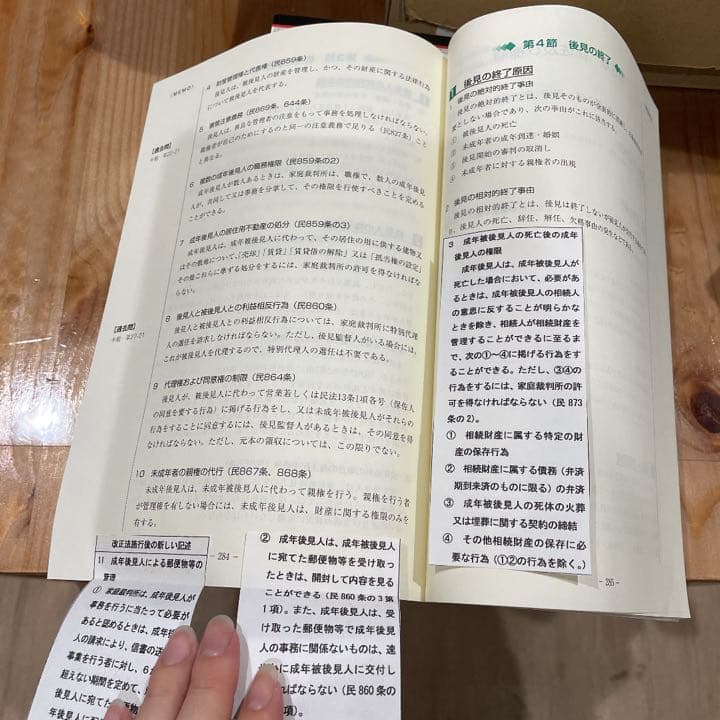 〔MEMO〕
4 財産管理権と代表権（民859条）
後見人は、被後見人の財産を管理し、かつ、その財産に関する法律行為
について被後見人を代表する。
5 善管注意義務（民869条、644条）
後見人は、善良な管理者の注意をもって事務を処理しなければならない。
親権者が自己のためにするのと同一の注意義務で足りる（民827条）こと
と異なる。
【過去問】
6 複数の成年後見人の職務権限（民859条の2）
成年後見人が数人あるときは、家庭裁判所は、職権で、数人の成年後見
人が、共同して又は事務を分掌して、その権限を行使すべきことを定める
ことができる。
7 成年後見人の居住用不動産の処分（民859条の3）
成年後見人は、成年被後見人に代わって、その居住の用に供する建物又
はその敷地について、「売却」「賃貸」「賃貸借の解除」又は「抵当権の設定」
その他これらに準ずる処分をするには、家庭裁判所の許可を得なければな
らない。
【過去問】
8 後見人と被後見人との利益相反行為（民860条）
後見人と被後見人との利益相反行為については、家庭裁判所に特別代理
人の選任を請求しなければならない。ただし、後見監督人がいる場合には、
これが被後見人を代理するので、特別代理人の選任は不要である。
9 代理権および同意権の制限（民864条）
後見人が、被後見人に代わって営業若しくは民法13条1項各号（保佐人
の同意を要する行為）に掲げる行為をし、又は未成年被後見人がそれらの
行為をすることに同意するには、後見監督人があるときは、その同意を得
なければならない。ただし、元本の領収については、この限りでない。
10 未成年者の親権の代行（民867条、868条）
未成年後見人は、未成年被後見人に代わって親権を行う。親権を行う者
が管理権を有しない場合には、未成年後見人は、財産に関する権限のみを
有する。
- 284 -
改正法施行後の新しい記述
11 成年後見人による郵便物等の
管理
① 家庭裁判所は、成年後見人が
事務を行うに当たって必要が
あると認めるときは、成年
人の請求により、信書の送
事業を行う者に対し、6
超えない期間を定めて、
後見人に宛てた
② 成年後見人は、成年被後見人
に宛てた郵便物等を受け取っ
たときは、開封して内容を見る
ことができる（民860条の3第
1項）。また、成年後見人は、
受け取った郵便物等で成年後見
人の事務に関係ないものは、速
に成年被後見人に交付し
ければならない（民860条の
項）。
第4節 後見の終了
1 後見の終了原因
1 後見の絶対的終了事由
後見の絶対的終了とは、後見そのものが
要としない場合であり、次の事由がこれに該当する。
① 被後見人の死亡
② 未成年者の成年到達・婚姻
③ 後見開始の審判の取消し
④ 未成年者に対する親権者の出現
2 後見の相対的終了事由
後見の相対的終了とは、後見は終了しないが
後見人の死亡、辞任、解任、欠格事由の
3 成年被後見人の死亡後の成年
後見人の権限
成年後見人は、成年被後見人が
死亡した場合において、必要があ
るときは、成年被後見人の相続人
の意思に反することが明らかな
ときを除き、相続人が相続財産を
管理することができるに至るま
で、次の①～④に掲げる行為をす
ることができる。ただし、③④の
行為をするには、家庭裁判所の許
可を得なければならない（民873
条の2）。
① 相続財産に属する特定の財産
の保存行為
② 相続財産に属する債務（弁済
期到来済のものに限る）の弁済
③ 成年被後見人の死体の火葬
又は埋葬に関する契約の締結
④ その他相続財産の保存に必
要な行為（①②の行為を除く。）
- 285 -